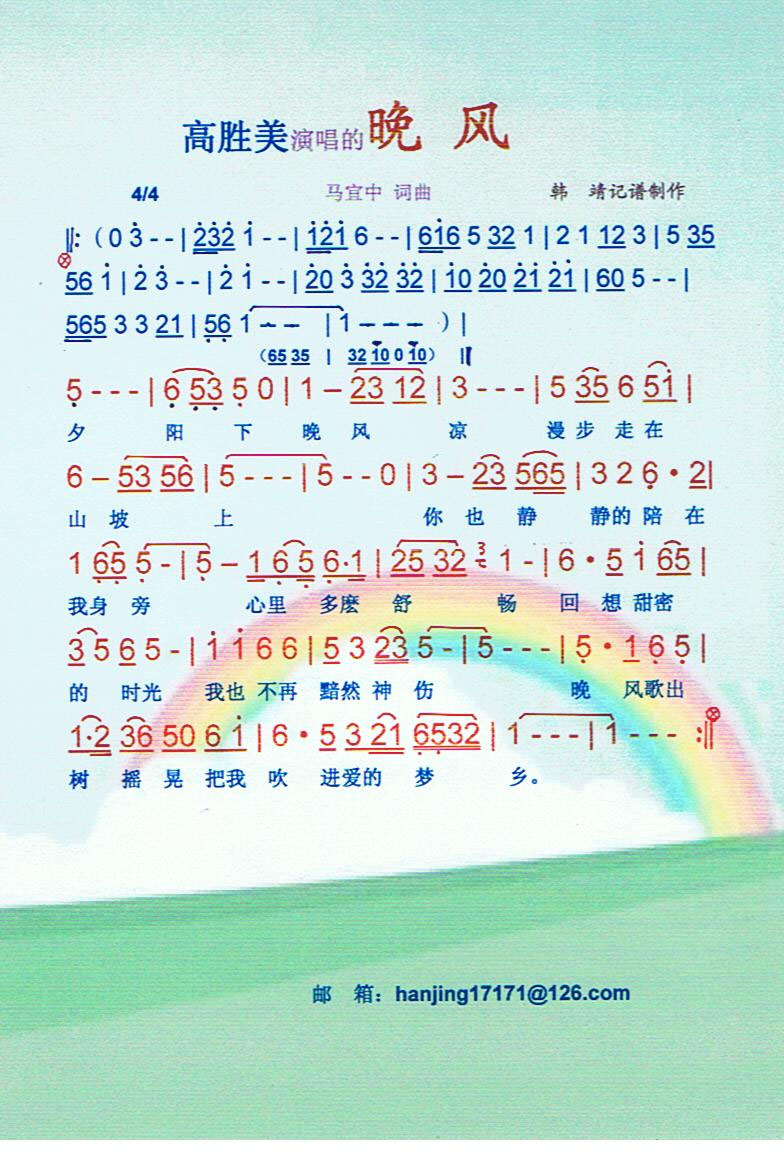 高胜美演唱的晚 风
4/4 马宜中 词曲 韩 靖记谱制作
‖:（0 3 - - | 232 1 - - | 121 6 - - | 616 5 32 1 | 2 1 12 3 | 5 35
56 1 | 2 3 - - | 2 1 - - | 20 3 32 32 | 10 20 21 21 | 60 5 - - |
565 3 3 21 | 56 1 - - | 1 - - - ）|
（65 35 | 32 10 0 10） ‖
5 - - - | 6 53 5 0 | 1 - 23 12 | 3 - - - | 5 35 6 51 |
夕 阳 下 晚 风 凉 漫 步 走 在
6 - 53 56 | 5 - - - | 5 - - 0 | 3 - 23 565 | 3 2 6 · 2 |
山 坡 上 你 也 静 静的 陪 在
1 65 5 - | 5 - 1 6 5 6·1 | 25 32 3 1 - | 6 · 5 1 65 |
我身 旁 心里 多麽 舒 畅 回 想 甜密
3 5 6 5 - | 1 1 6 6 | 5 3 23 5 - | 5 - - - | 5 · 1 6 5 |
的 时光 我也 不再 黯然 神 伤 晚 风歌出
1·2 36 50 6 1 | 6 · 5 3 21 6532 | 1 - - - | 1 - - - :‖
树 摇 晃 把我 吹 进爱的 梦 乡。
邮 箱：hanjing17171@126.com